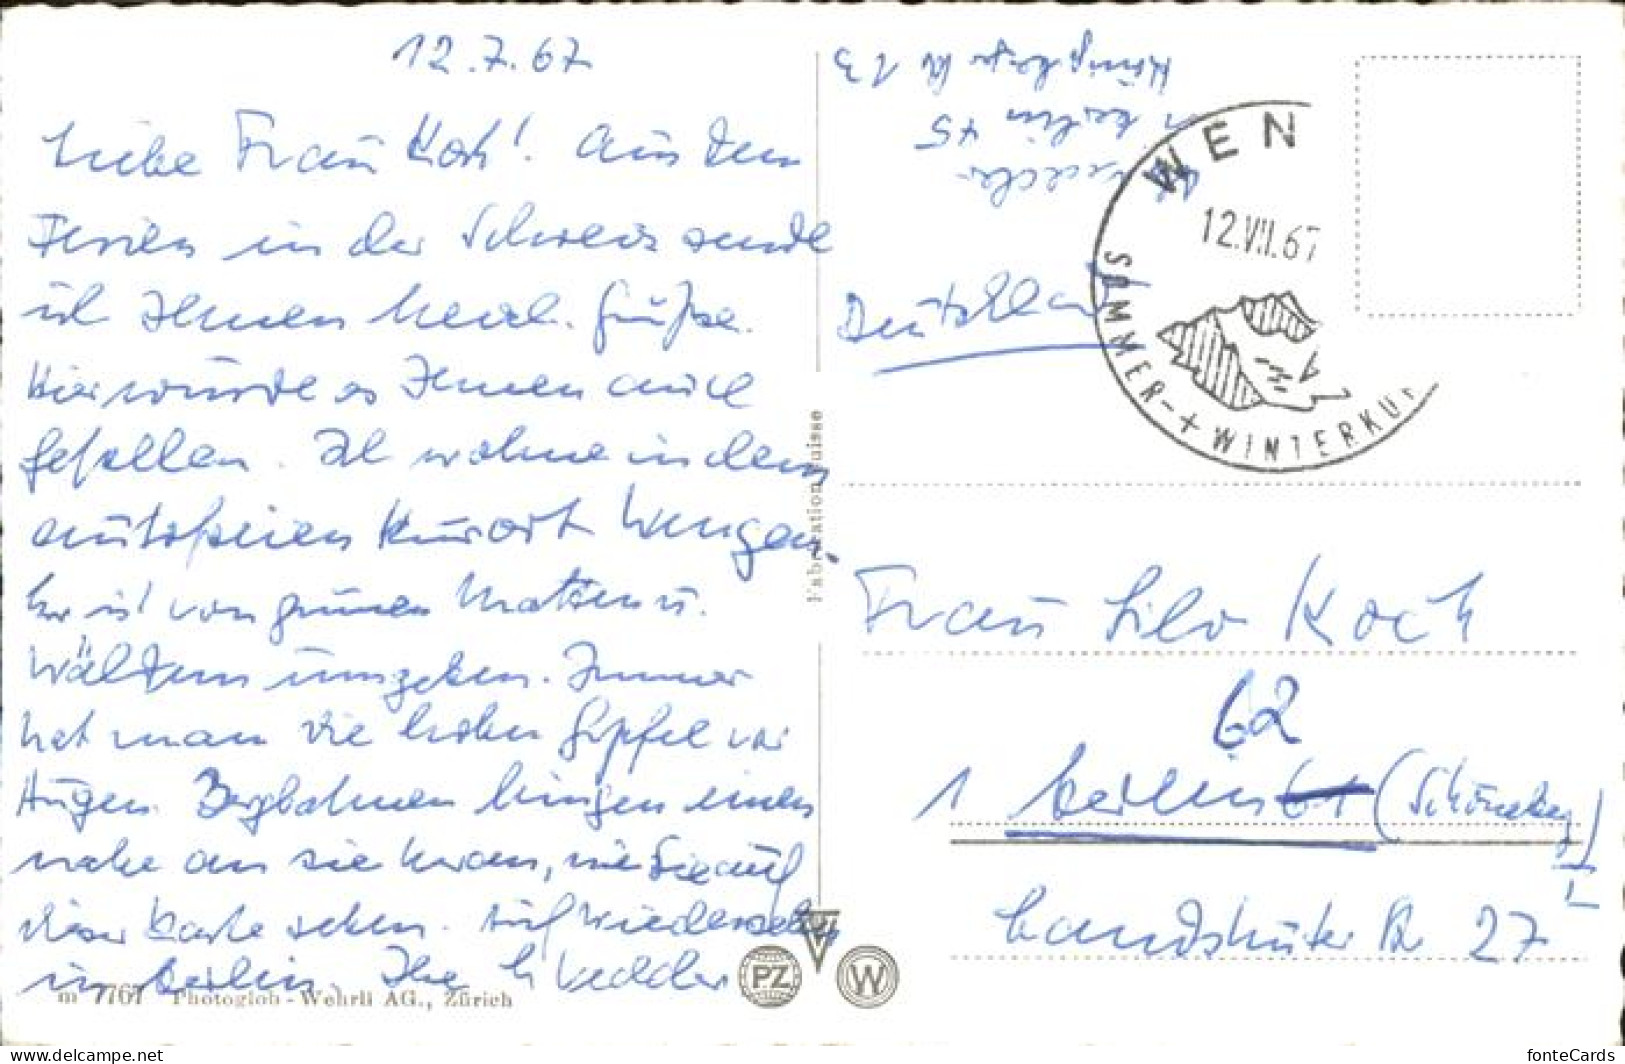 12.7.67
Liebe Frau Koch! Aus den
Ferien in der Schweiz sende
ich Ihnen herzl. Grüße.
Hier würde es Ihnen auch
gefallen. Ich wohne in dem
autofreien Kurort Wengen.
Er ist von grünen Matten u.
Wäldern umgeben. Immer
hat man die hohen Gipfel vor
Augen. Bergbahnen bringen einen
nahe an sie heran, wie Sie auf
dieser Karte sehen. Auf Wiedersehen
in Berlin. Ihre
m 7767 Photoglob-Wehrli AG., Zürich
Fabrication Suisse
PZ W
1 Berlin 45
13
Deutschland
WEN
12.VII.67
SOMMER-+WINTERKUR
Frau Koch
62
1 Berlin (Schöneberg)
Landshuter Str 27
fonteCards